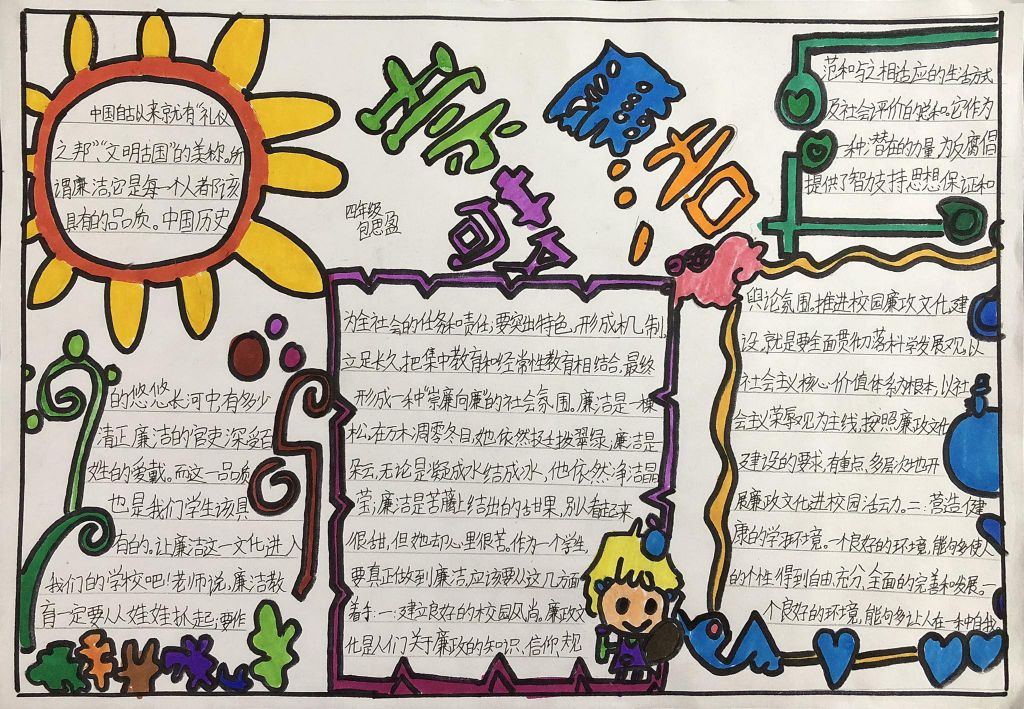 中国自古以来就有"礼仪
之邦"、"文明古国"的美称。所
谓廉洁,它是每一个人都该
具有的品质。中国历史
四年级
包思盈
的悠悠长河中,有多少
清正廉洁的官吏深受百
姓的爱戴。而这一品质
也是我们学生该具
有的。让廉洁这一文化进入
我们的学校吧!老师说,廉洁教
育一定要从娃娃抓起;要作
为全社会的任务和责任;要突出特色,形成机制,
立足长久,把集中教育和经常性教育相结合,最终
形成一种"崇廉向廉"的社会氛围。廉洁是一棵
松,在万木凋零冬日,她依然挺拔翠绿;廉洁是
朵云,无论是凝成水结成冰,他依然净洁晶
莹;廉洁是苦藤上结出的甜果,别人看起来
很甜,但她却心里很苦。作为一个学生,
要真正做到廉洁,应该要从这几方面
着手:一:建立良好的校园风尚。廉政文
化是人们关于廉政的知识、信仰、规
范和与之相适应的生活方式
及社会评价的总和。它作为
一种潜在的力量为反腐倡
提供了智力支持、思想保证和
舆论氛围。推进校园廉政文化建
设,就是要全面贯彻落科学发展观,以
社会主义核心价值体系为根本,以社
会主义荣辱观为主线,按照廉政文化
建设的要求,有重点、多层次地开
展廉政文化进校园活动。二:营造健
康的学习环境。一个良好的环境,能够使人
的个性得到自由、充分、全面的完善和发展。一
个良好的环境,能够让人在一种自我